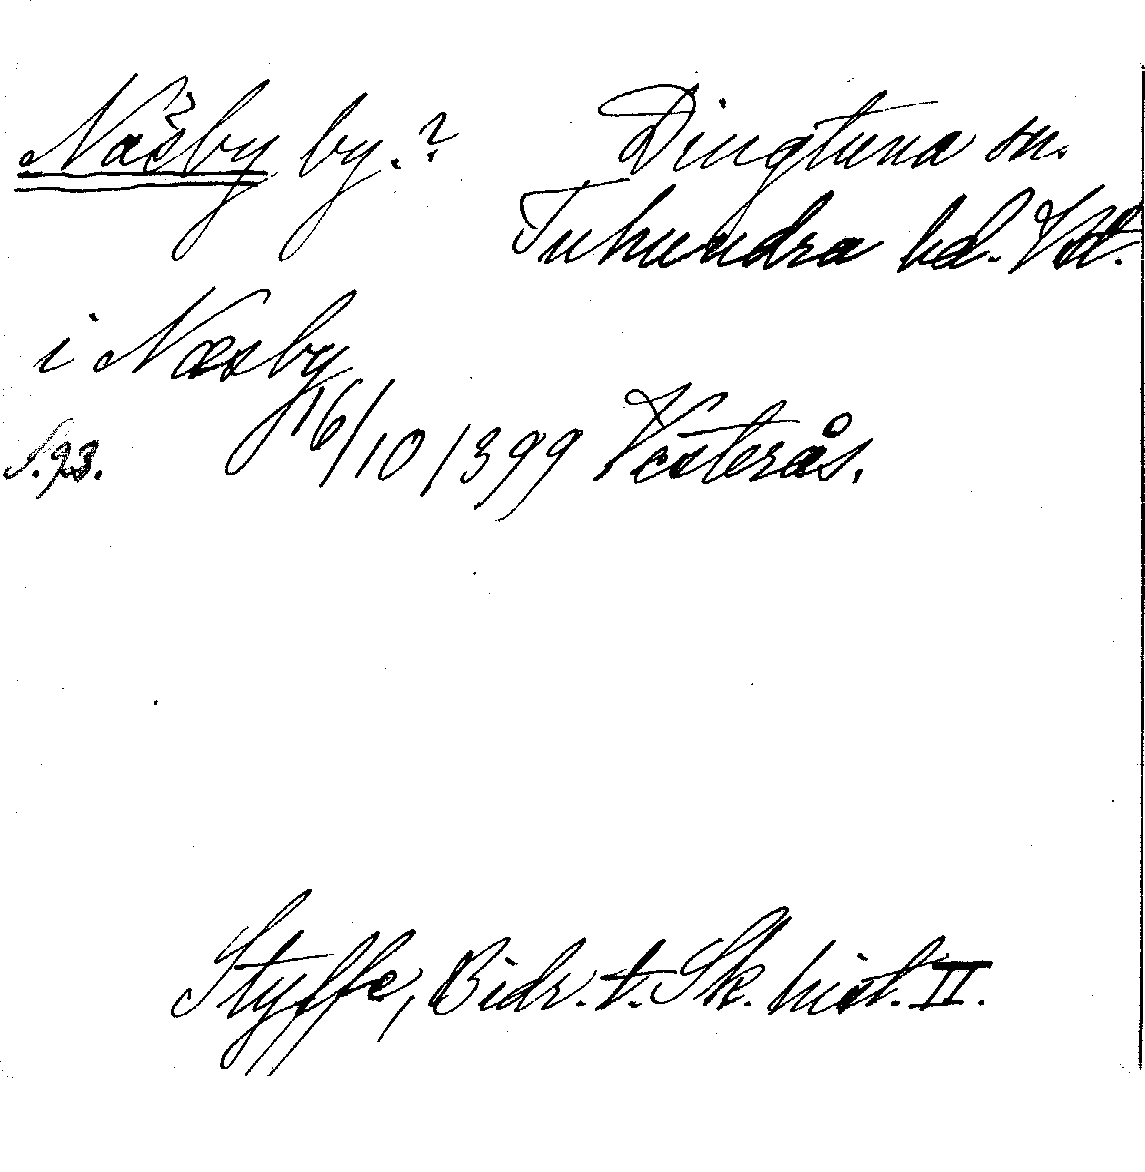 Näsby by.? Dingtuna sn.
Tuhundra hd. Vstl.
i Næsby
S.93. 16/10 1399 Vesterås.
Styffe, Bidr. t. Sk. hist. II.